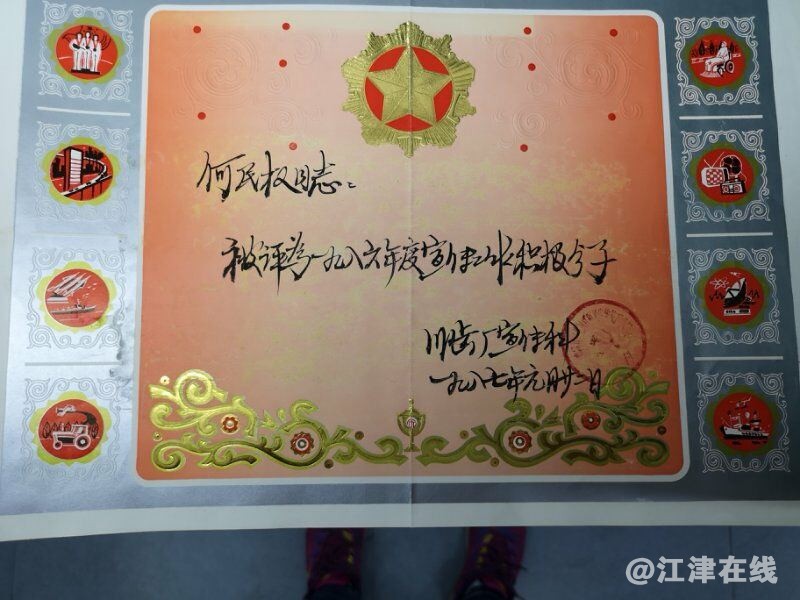 何民权同志：
被评为一九八六年度宣传工作积极分子
川齿厂宣传科
一九八七年元月廿二日
@江津在线